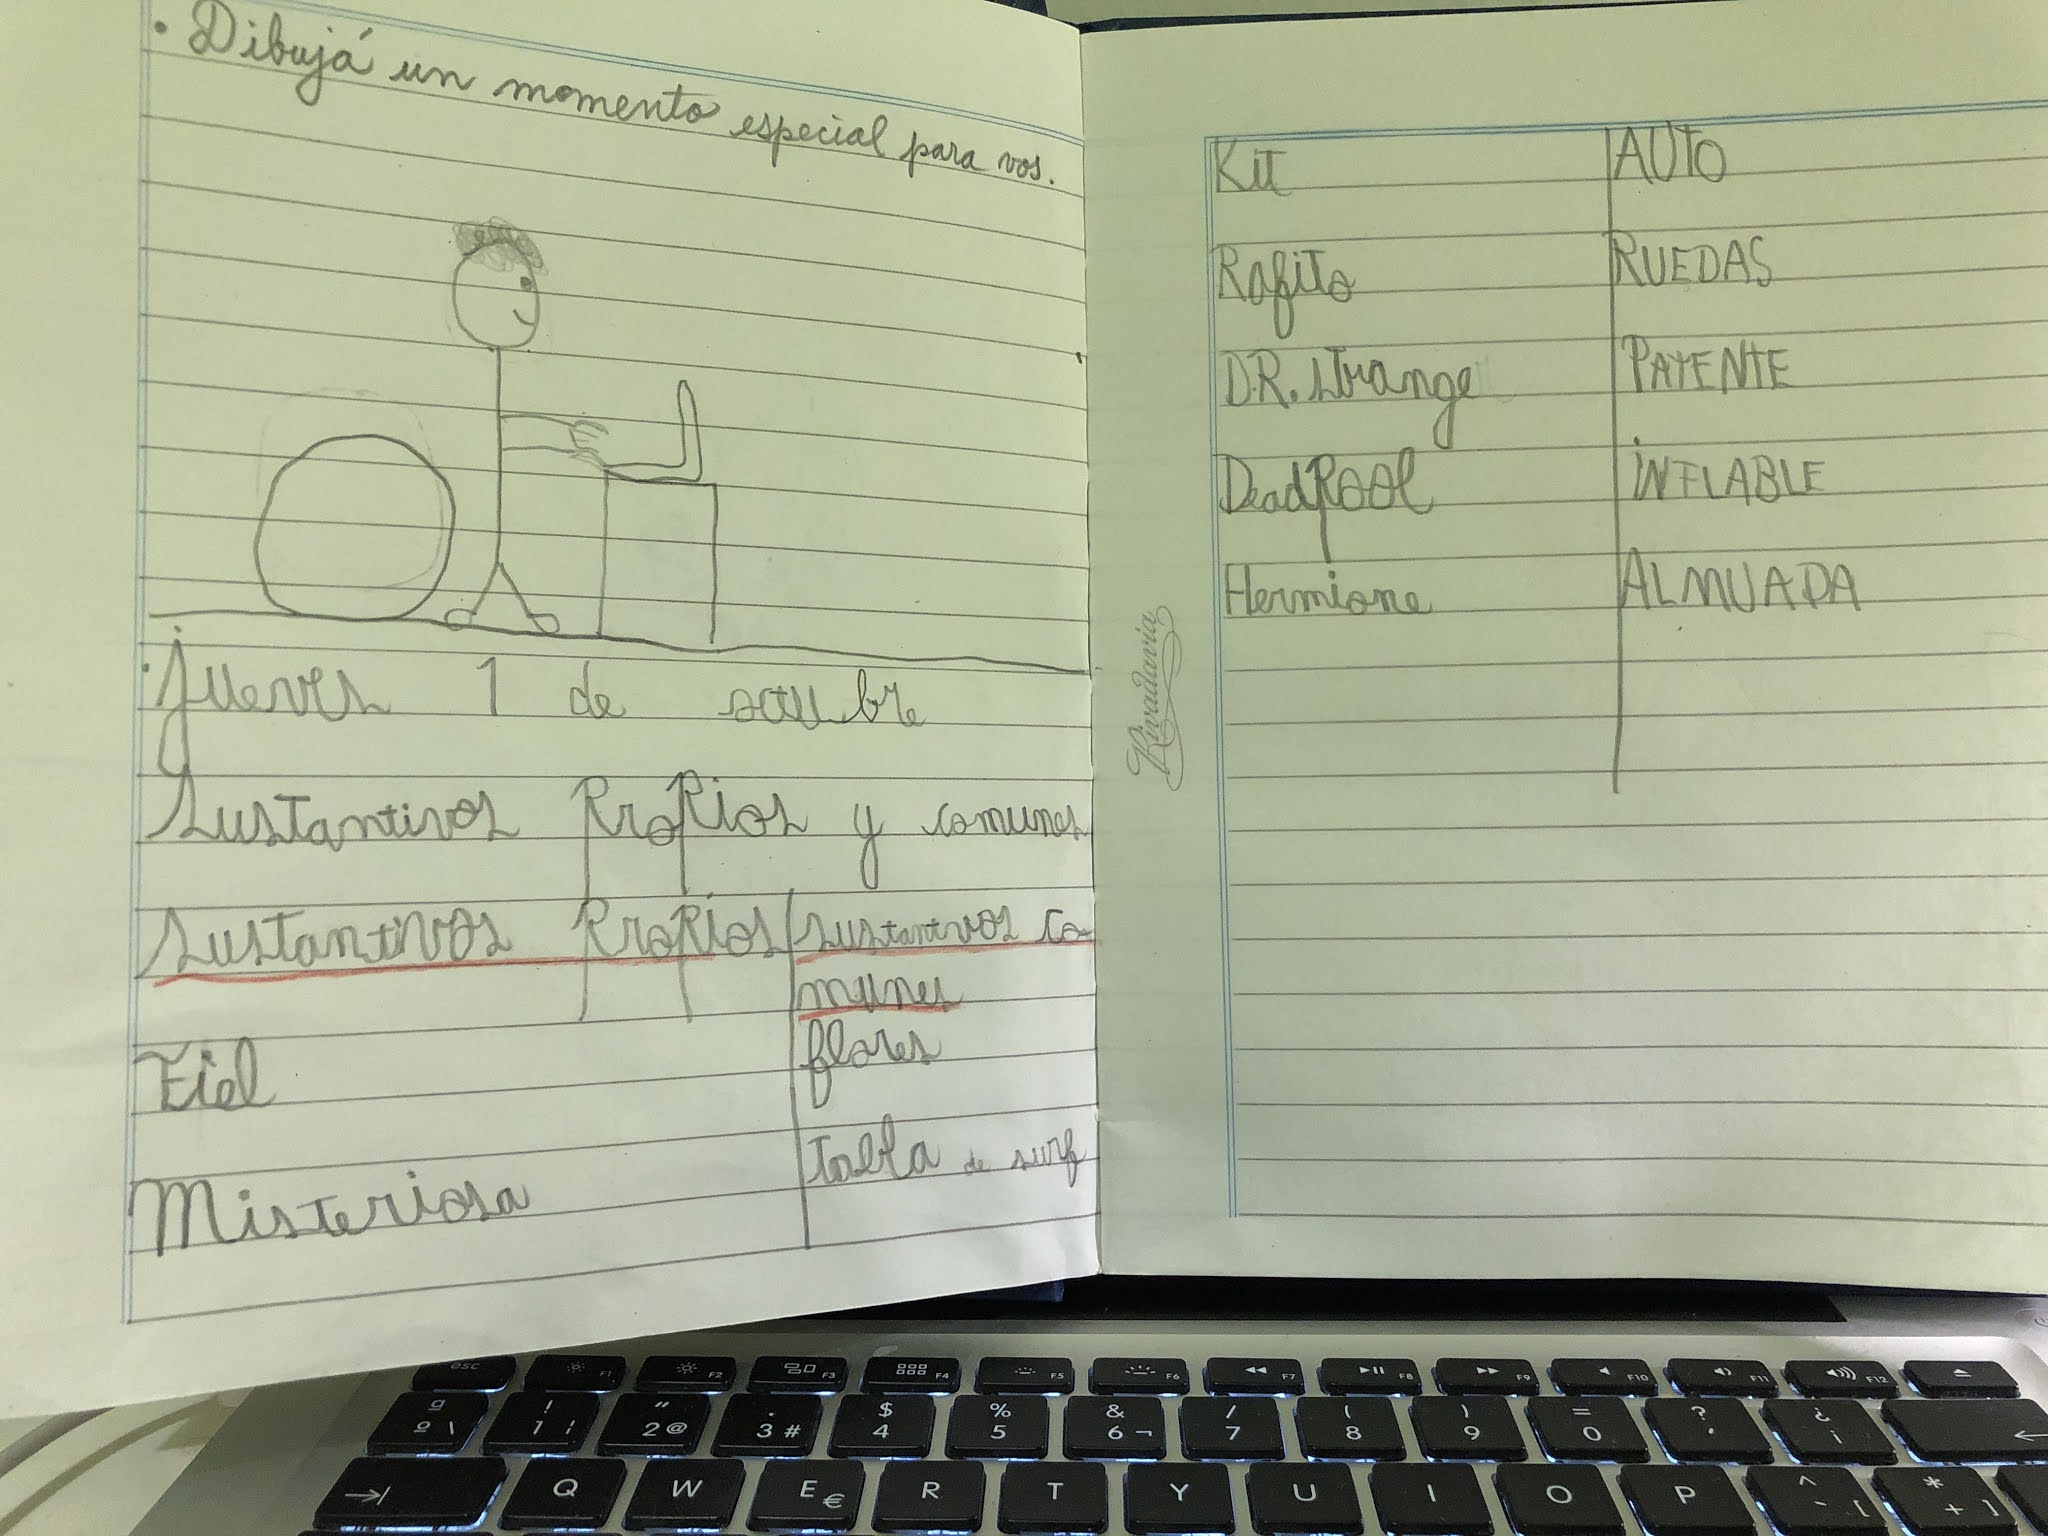 • Dibujá un momento especial para vos.
jueves 1 de octubre
Sustantivos Propios y comunes
Sustantivos Propios | Sustantivos co-
munes
Fiel | flores
Misteriosa | tabla de surf
Kit | AUTO
Rafito | RUEDAS
D.R. strange | PATENTE
DeadPool | iNFLABLE
Hermione | ALMUADA
Rivadavia
esc F1 F2 F3 F4 F5 F6 F7 F8 F9 F10 F11 F12
ª º \ ! 1 | " 2 @ · 3 # $ 4 % 5 & 6 ¬ / 7 ( 8 ) 9 = 0 ? ' ¿ ¡
Q W E € R T Y U I O P ^ ` [ * + ]